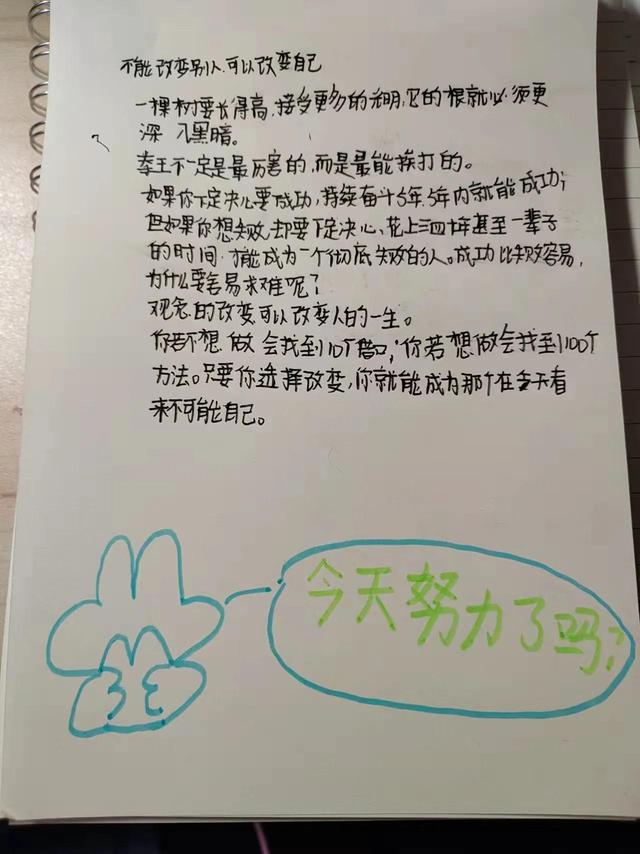 不能改变别人,可以改变自己
一棵树要长得高,接受更多的光明,它的根就必须更
深入黑暗。
拳王不一定是最厉害的,而是最能挨打的。
如果你下定决心要成功,持续奋斗5年,5年内就能成功;
但如果你想失败,却要下定决心、花上三四十年甚至一辈子
的时间,才能成为一个彻底失败的人。成功比失败容易,
为什么要舍易求难呢?
观念的改变可以改变人的一生。
你若不想做会找到10个借口;你若想做会找到100个
方法。只要你选择改变,你就能成为那个在今天看
来不可能自己。
今天努力了吗?